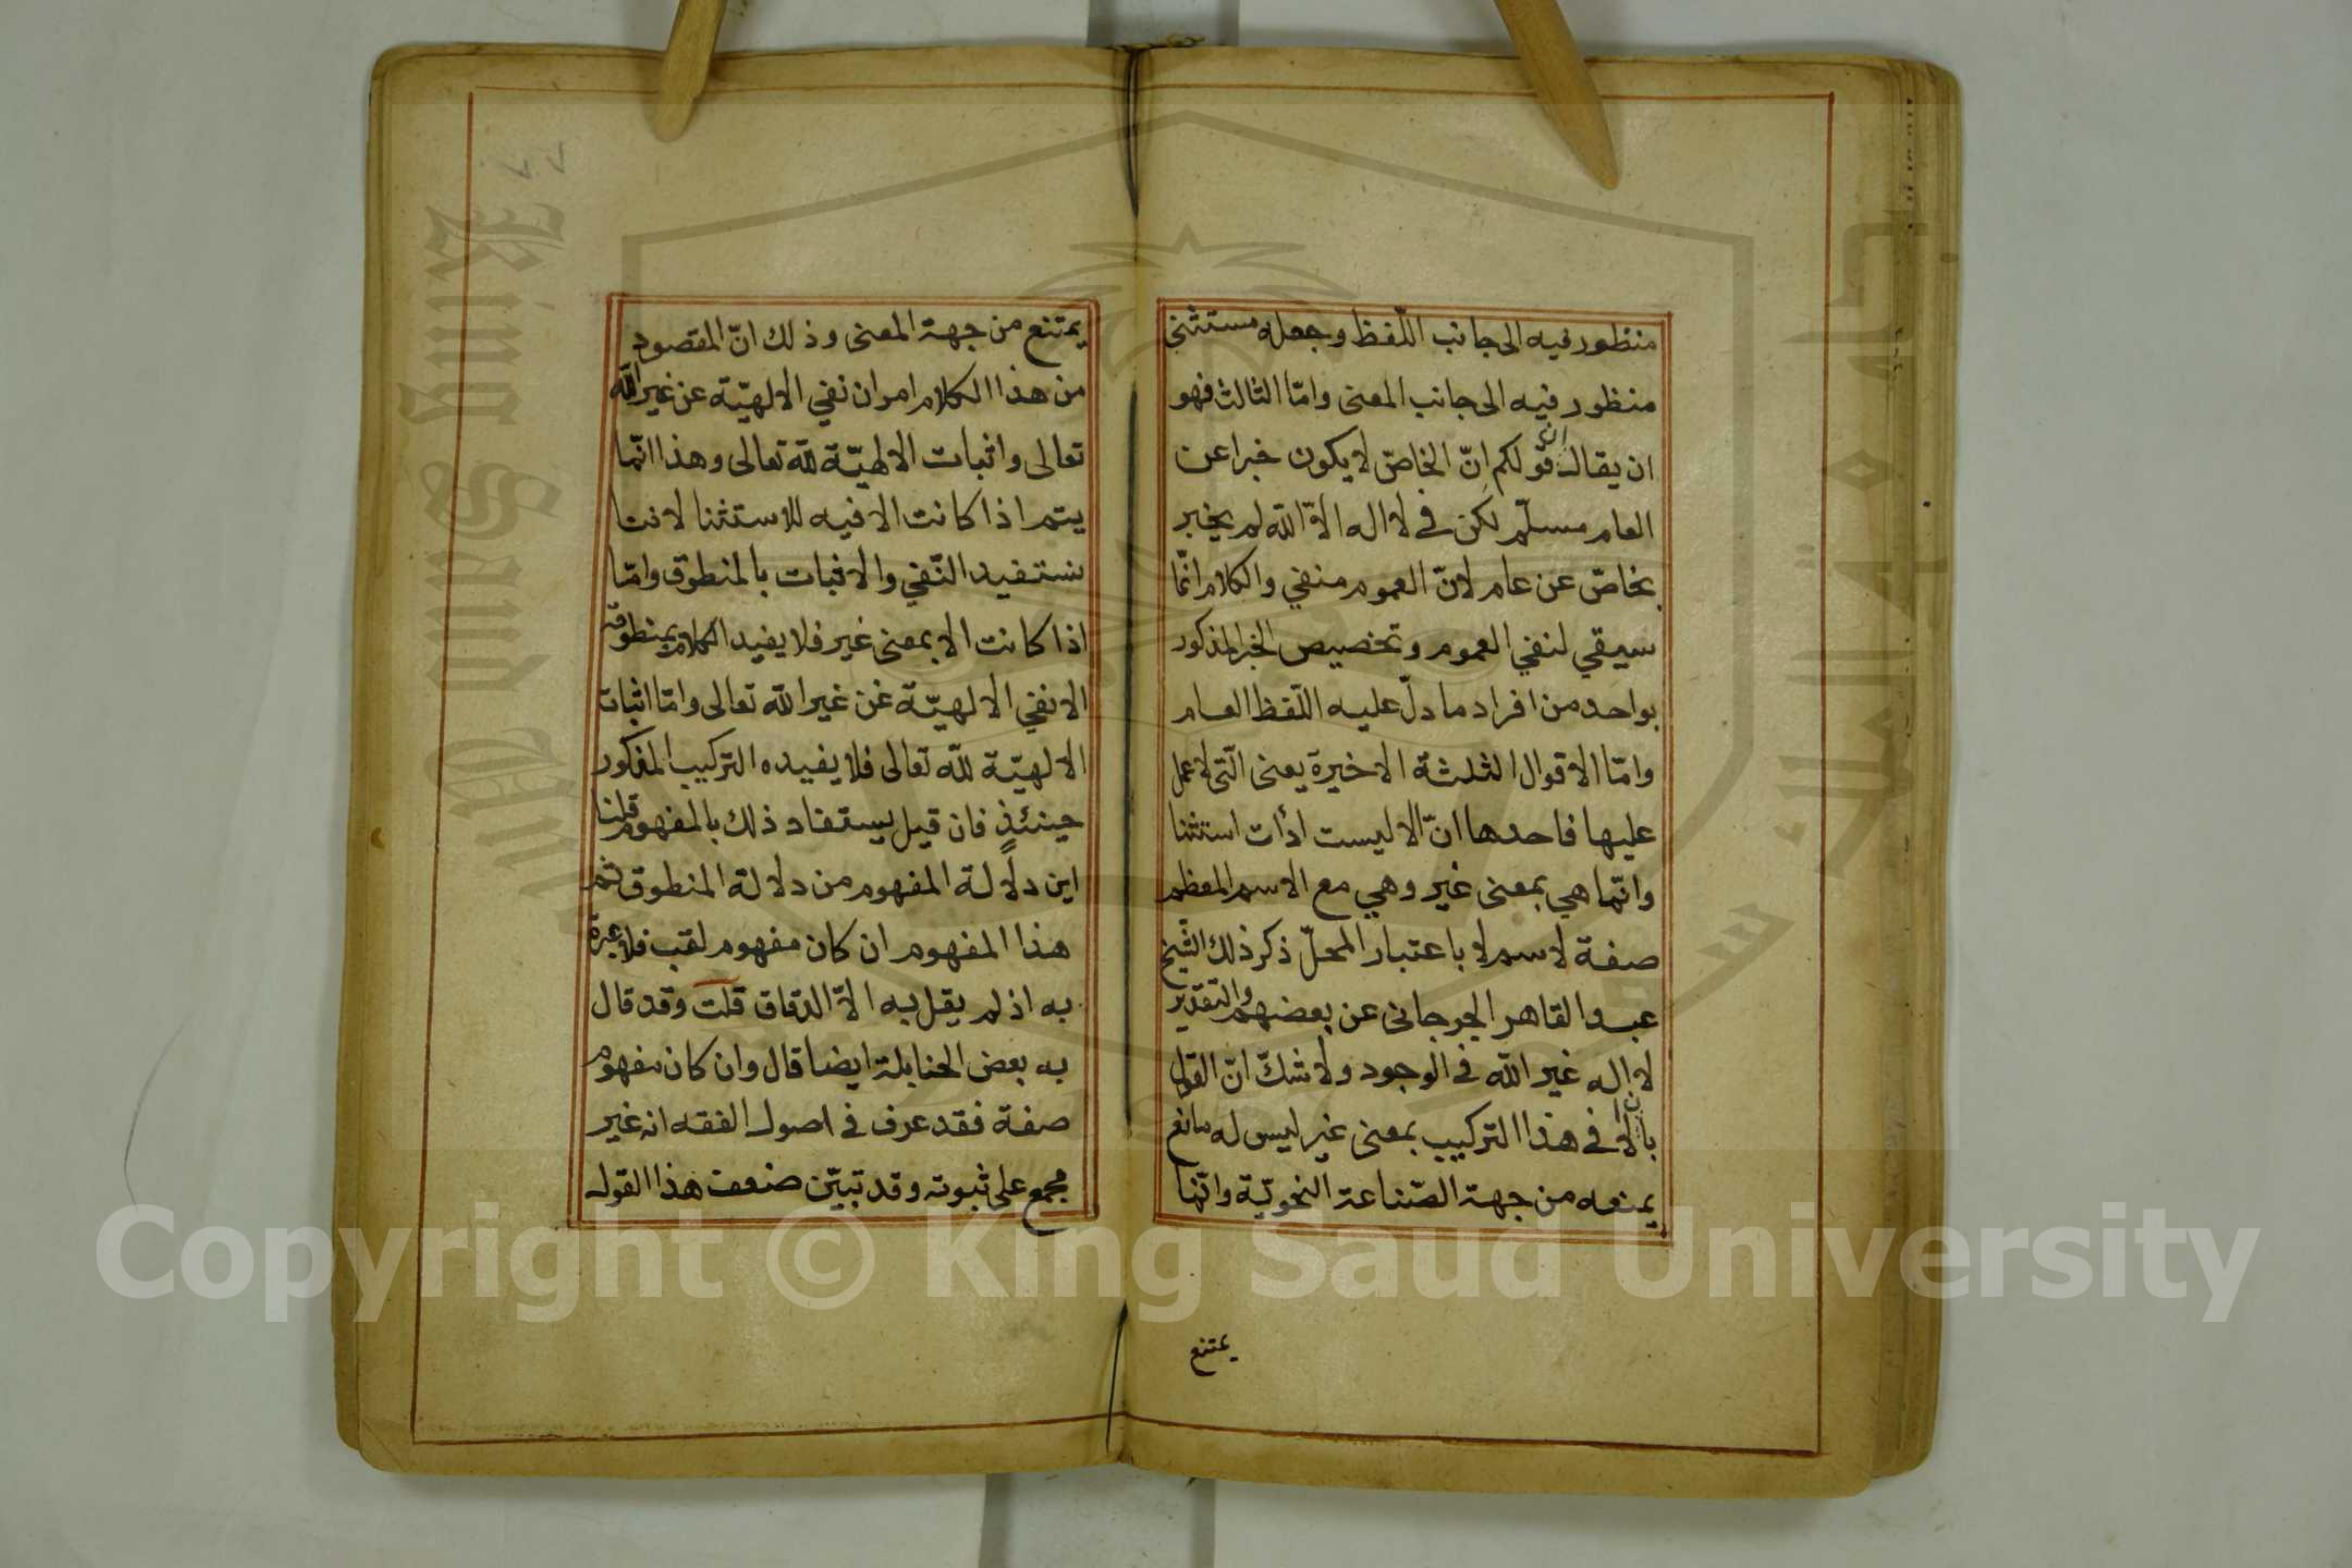 منظور فيه الى جانب اللّفظ وجعله مستثنى
منظور فيه الى جانب المعنى وامّا الثالث فهو
ان يقال انّ قولكم انّ الخاصّ لا يكون خبرا عن
العام مسلّم لكن في لا اله الاّ الله لم يخبر
بخاصّ عن عام لانّ العموم منفي والكلام انّما
سيقي لنفي العموم وتخصيص الخبر المذكور
بواحد من افراد ما دلّ عليه اللّفظ العام
وامّا الاقوال الثلثة الاخيرة يعنى الّتى لا عمل
عليها فاحدها انّ الا ليست ادأت استثنا
وانّما هي بمعنى غير وهي مع الاسم المعظم
صفة لاسم لا باعتبار المحلّ ذكر ذلك الشّيخ
عبد القاهر الجرجانى عن بعضهم والتقدير
لا اله غير الله في الوجود ولا شكّ انّ القول
بانّ الا في هذا التركيب بمعنى غير ليس له مانع
يمنعه من جهة الصّناعة النحويّة وانّما
يمتنع
يمتنع من جهة المعنى وذلك انّ المقصود
من هذا الكلام امران نفي الالهيّة عن غير الله
تعالى واثبات الالهيّة لله تعالى وهذا انّما
يتم اذا كانت الا فيه للاستثنا لاننا
نستفيد النّفي والاثبات بالمنطوق وامّا
اذا كانت الا بمعنى غير فلا يفيد الكلام بمنطوقه
الا نفي الالهيّة عن غير الله تعالى وامّا اثبات
الالهيّة للّه تعالى فلا يفيده التركيب المذكور
حينئذٍ فان قيل يستفاد ذلك بالمفهوم قلنا
اين دلالة المفهوم من دلالة المنطوق ثم
هذا المفهوم ان كان مفهوم لقب فلا عبرة
به اذ لم يقل به الاّ الدقاق قلت وقد قال
به بعض الحنابلة ايضا قال وان كان مفهوم
صفة فقد عرف في اصول الفقه انه غير
مجمع على ثبوته وقد تبيّن ضعف هذا القول
Copyright © King Saud University